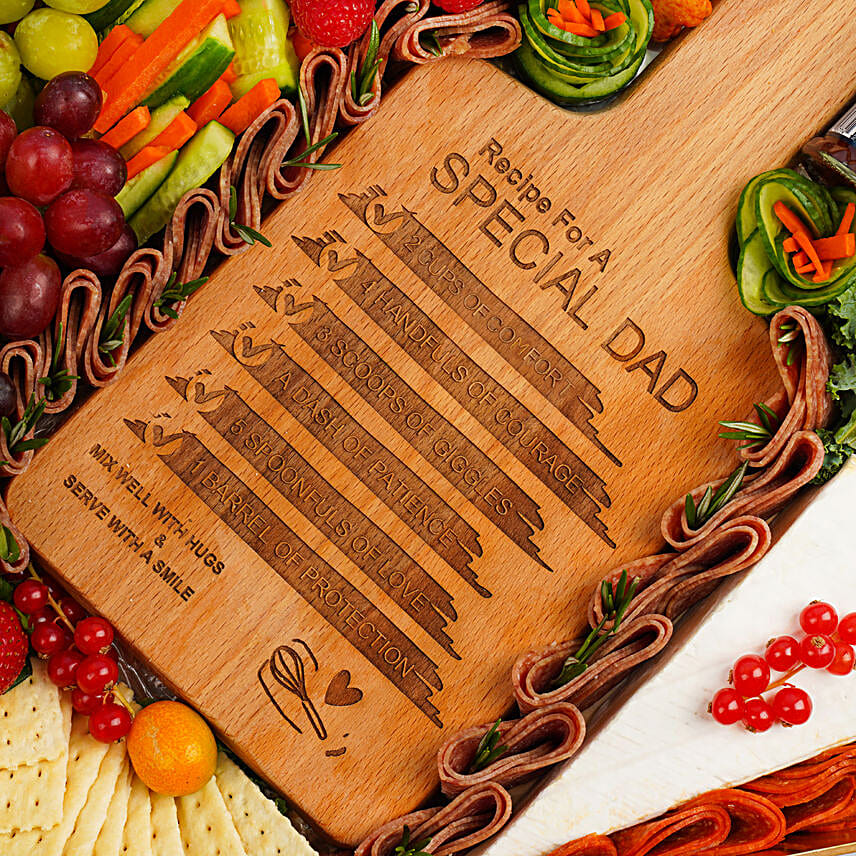 Recipe For A
SPECIAL DAD
2 CUPS OF COMFORT
4 HANDFULS OF COURAGE
3 SCOOPS OF GIGGLES
A DASH OF PATIENCE
5 SPOONFULS OF LOVE
1 BARREL OF PROTECTION
MIX WELL WITH HUGS
&
SERVE WITH A SMILE